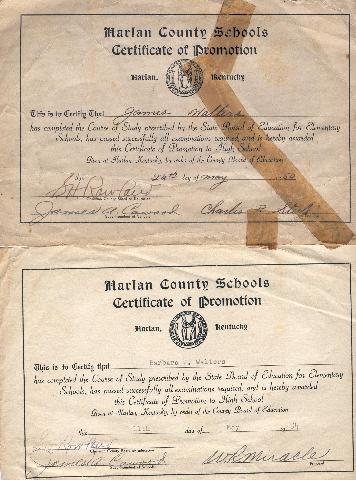 Harlan County Schools
Certificate of Promotion
Harlan, Kentucky
This is to Certify That James Walters
has completed the Course of Study prescribed by the State Board of Education for Elementary
Schools, has passed successfully all examinations required, and is hereby awarded
this Certificate of Promotion to High School
Given at Harlan, Kentucky, by order of the County Board of Education
this 26th day of May
James A. Cawood Charles
Harlan County Schools
Certificate of Promotion
Harlan, Kentucky
This is to Certify that Barbara Walters
has completed the Course of Study prescribed by the State Board of Education for Elementary
Schools, has passed successfully all examinations required, and is hereby awarded
this Certificate of Promotion to High School
Given at Harlan, Kentucky, by order of the County Board of Education
this 11th day of May
James A. Cawood W R Miracle
Principal